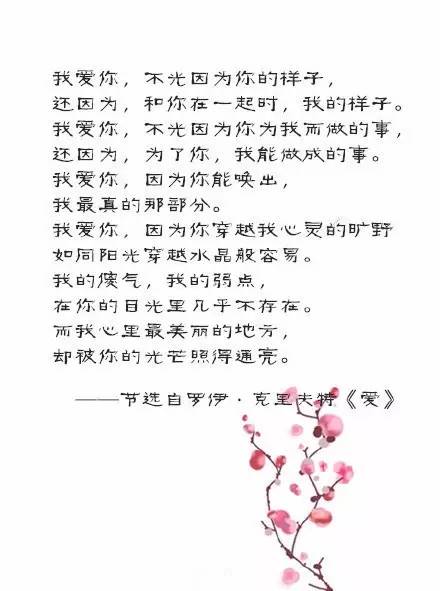 我爱你，不光因为你的样子，
还因为，和你在一起时，我的样子。
我爱你，不光因为你为我而做的事，
还因为，为了你，我能做成的事。
我爱你，因为你能唤出，
我最真的那部分。
我爱你，因为你穿越我心灵的旷野
如同阳光穿越水晶般容易。
我的傻气，我的弱点，
在你的目光里几乎不存在。
而我心里最美丽的地方，
却被你的光芒照得通亮。
——节选自罗伊·克里夫特《爱》